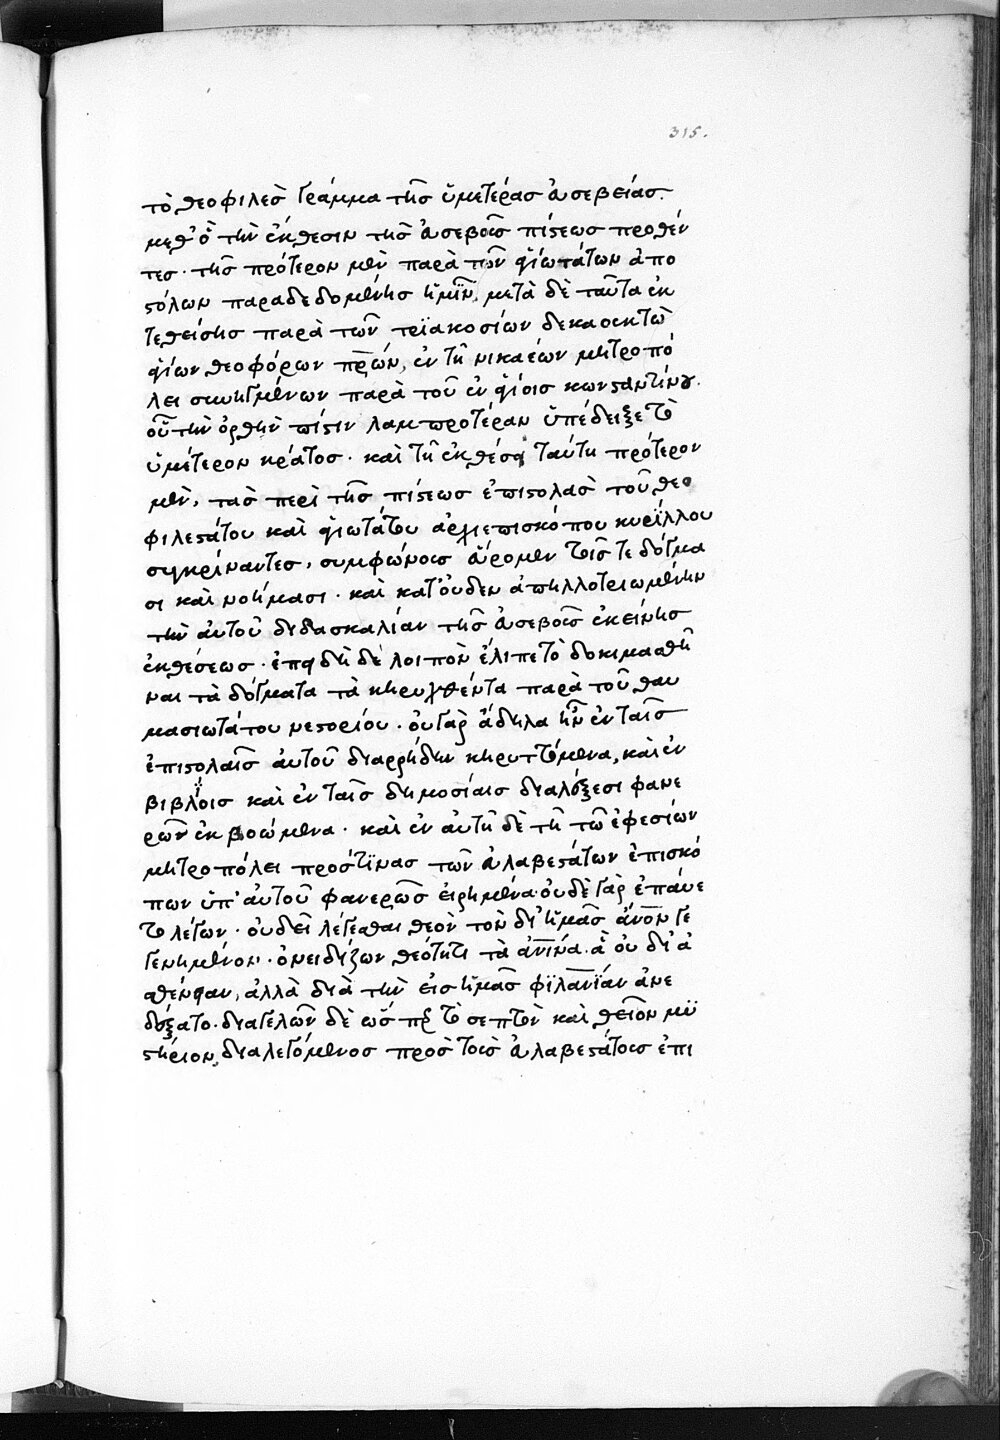 315.
τὸ θεοφιλὲσ γράμμα τῆσ ὑμετέρασ εὐσεβείασ.
μεθ' ὃ τὴν ἔκθεσιν τῆσ εὐσεβοῦσ πίστεωσ προθέν
τεσ· τῆσ πρότερον μὲν παρὰ τῶν ἁγιωτάτων ἀπο
στόλων παραδεδομένησ ἡμῖν, μετὰ δὲ ταῦτα ἐκ
τεθείσησ παρὰ τῶν τριακοσίων δεκαοκτὼ
ἁγίων θεοφόρων πρῶν, ἐν τῆ νικαέων μητροπό
λει συνηγμένων παρὰ τοῦ ἐν ἁγίοισ κωνσταντίνου.
οὗ τὴν ὀρθὴν πίστιν λαμπροτέραν ὑπέδειξε τὸ
ὑμέτερον κράτοσ· καὶ τῆ ἐκθέσει ταύτη πρότερον
μὲν, τὰσ περὶ τῆσ πίστεωσ ἐπιστολὰσ τοῦ θεο
φιλεστάτου καὶ ἁγιωτάτου ἀρχιεπισκόπου κυρίλλου
συγκρίναντεσ, συμφώνουσ εὕρομεν τοῖσ τε δόγμα
σι καὶ νοήμασι· καὶ κατ' οὐδεν ἀπηλλοτριωμένην
τὴν αὐτοῦ διδασκαλίαν τῆσ εὐσεβοῦσ ἐκείνησ
ἐκθέσεωσ· ἐπειδὴ δὲ λοιπὸν ἐλιπε τὸ δοκιμασθῆ
ναι τὰ δόγματα τὰ κηρυχθέντα παρὰ τοῦ θαυ
μασιωτάτου νεστορίου· οὐ γὰρ ἄδηλα ἦν ἐν ταῖσ
ἐπιστολαῖσ αὐτοῦ διαρρήδην κηρυττόμενα, καὶ ἐν
βιβλίοισ καὶ ἐν ταῖσ δημοσίαισ διαλέξεσι φανε
ρῶν ἐκβοώμενα· καὶ ἐν αὐτῆ δὲ τῆ τῶν ἐφεσίων
μητροπόλει πρόσ τινασ τῶν εὐλαβεστάτων ἐπισκό
πων ὑπ' αὐτοῦ φανερῶσ εἰρημένα· οὐδὲ γὰρ ἐπαύε
το λέγων· οὐ δεῖ λέγεσθαι θεὸν τὸν δι' ἡμᾶσ ἄνον γε
γενημένον· ὀνειδίζων θεότητι τὰ ἀνινα· ἃ οὐ δι' ἀ
σθένειαν, ἀλλὰ διὰ τὴν εἰσ ἡμᾶσ φιλανϊαν ἀνε
δέξατο· διαγελῶν δὲ ὥσπερ τὸ σεπτὸν καὶ θεῖον μυ
στήριον, διαλεγόμενοσ προσ τοὺσ εὐλαβεστάτουσ ἐπι